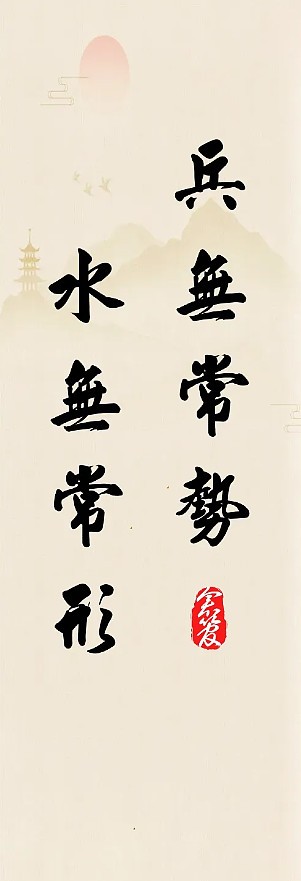 兵無常勢
水無常形